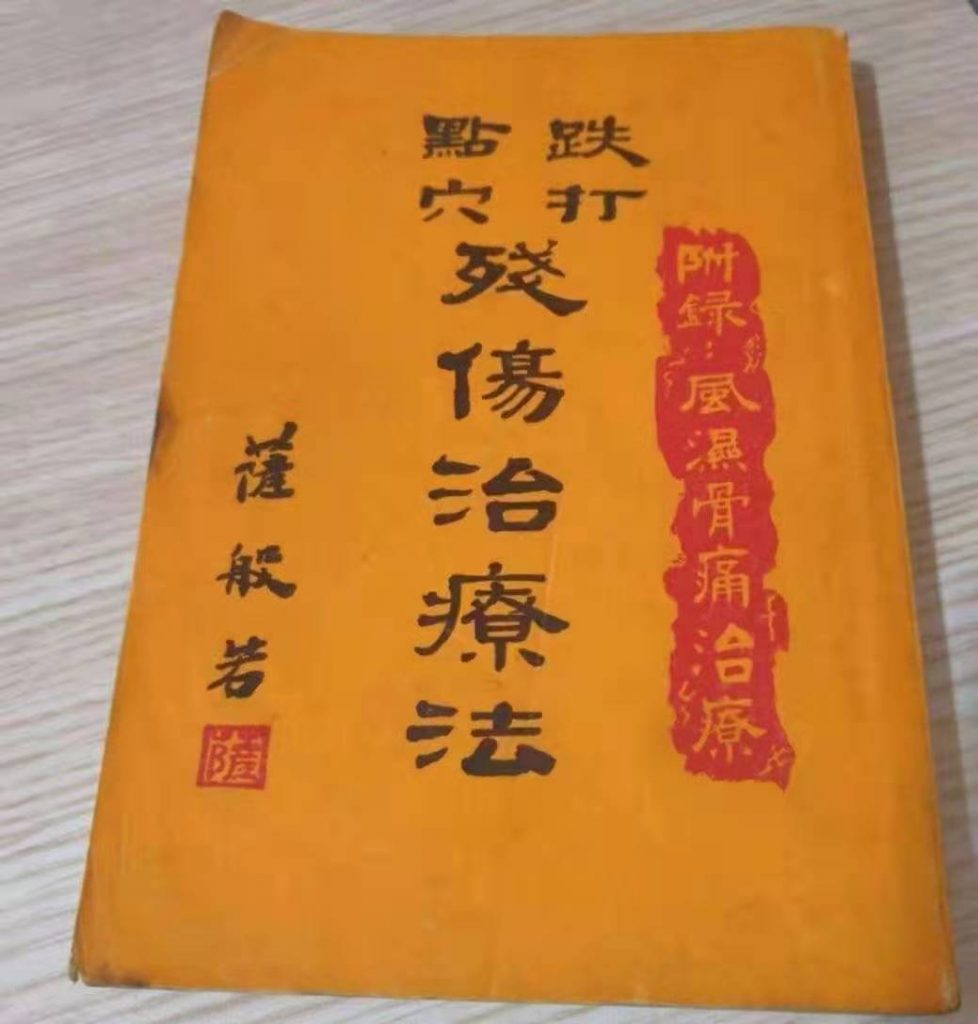 跌打
點穴
殘傷治療法
附録：風濕骨痛治療
薩般若
薩